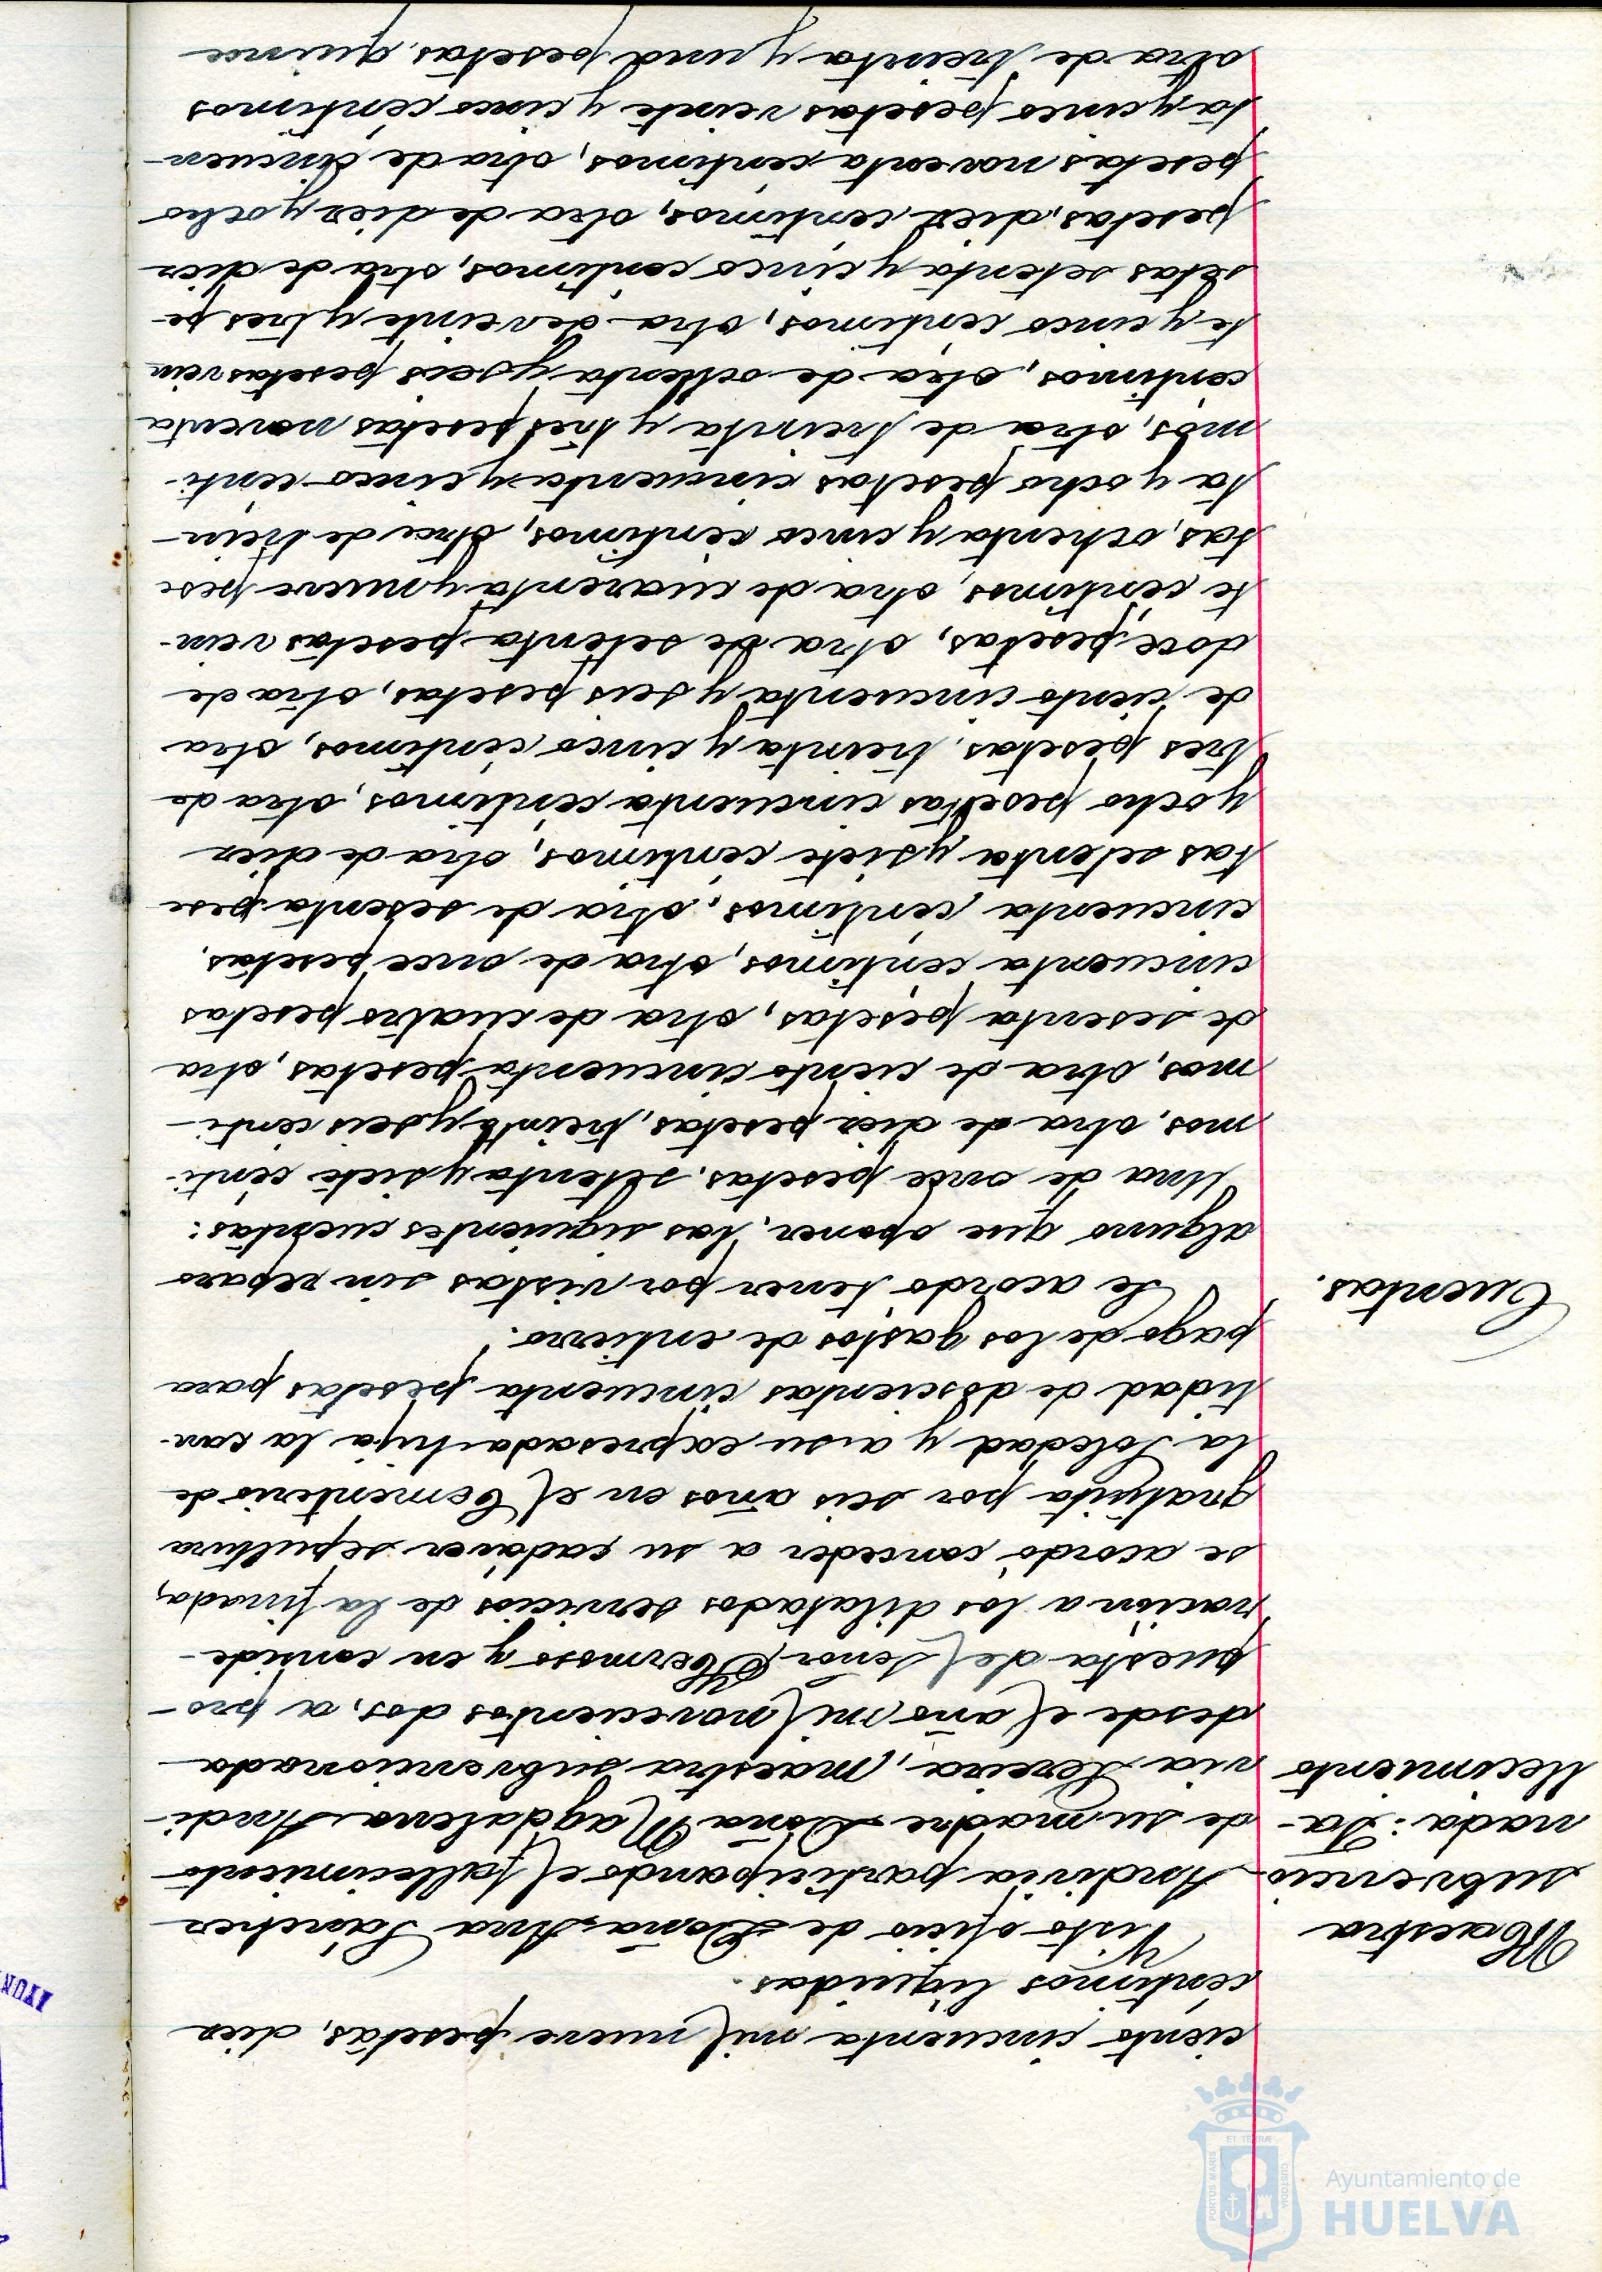 ciento cincuenta mil nueve pesetas, diez
céntimos líquidas.
Maestra
subvencio-
nada: Fa-
llecimiento
Visto oficio de Doña Ana Sánchez
Andivia participando el fallecimiento
de su madre Doña Magdalena Andi-
via Pereira, maestra subvencionada
desde el año mil novecientos dos, a pro-
puesta del Señor Hermoso y en conside-
ración a los dilatados servicios de la finada,
se acordó conceder a su cadáver sepultura
gratuita por seis años en el Cementerio de
la Soledad y a su expresada hija la can-
tidad de doscientas cincuenta pesetas para
pago de los gastos de entierro.
Cuentas.
Se acordó tener por vistas sin reparo
alguno que oponer, las siguientes cuentas:
Una de once pesetas, setenta y siete cénti-
mos, otra de diez pesetas, treinta y seis cénti-
mos, otra de ciento cincuenta pesetas, otra
de sesenta pesetas, otra de cuatro pesetas
cincuenta céntimos, otra de once pesetas,
cincuenta céntimos, otra de sesenta pese
tas setenta y siete céntimos, otra de diez
y ocho pesetas cincuenta céntimos, otra de
tres pesetas, treinta y cinco céntimos, otra
de ciento cincuenta y seis pesetas, otra de
doce pesetas, otra de setenta pesetas vein-
te céntimos, otra de cuarenta y nueve pese
tas, ochenta y cinco céntimos, otra de trein-
ta y ocho pesetas cincuenta y cinco cénti-
mos, otra de treinta y tres pesetas noventa
céntimos, otra de ochenta y seis pesetas vein
te y cinco céntimos, otra de veinte y tres pe-
setas setenta y cinco céntimos, otra de diez
pesetas, diez céntimos, otra de diez y ocho
pesetas noventa céntimos, otra de cincuen-
ta y cinco pesetas veinte y cinco céntimos
otra de treinta y una pesetas, quince
ET TERRÆ
PORTUS MARIS
CUSTODIA
Ayuntamiento de
HUELVA